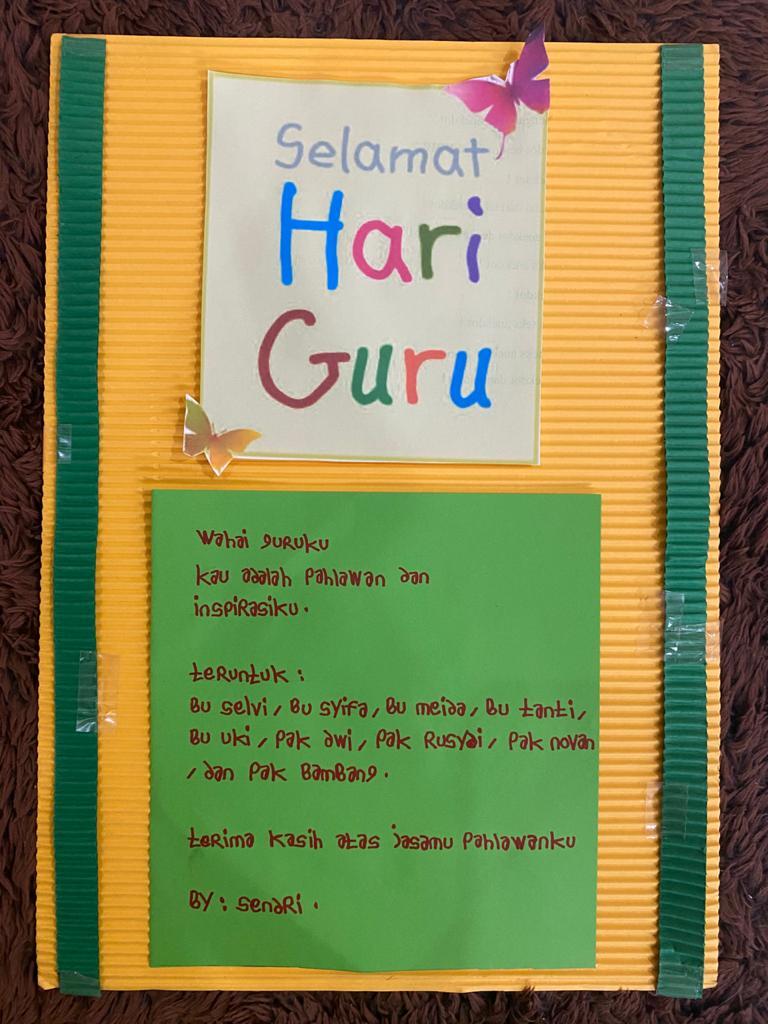 Selamat
Hari
Guru
Wahai guruku
kau adalah Pahlawan dan
inspirasiku.
teruntuk :
Bu selvi, Bu syifa, Bu meida, Bu tanti,
Bu uki, Pak dwi, Pak Rusydi, Pak novan
, dan Pak Bambang.
terima kasih atas jasamu Pahlawanku
BY : sendRi.